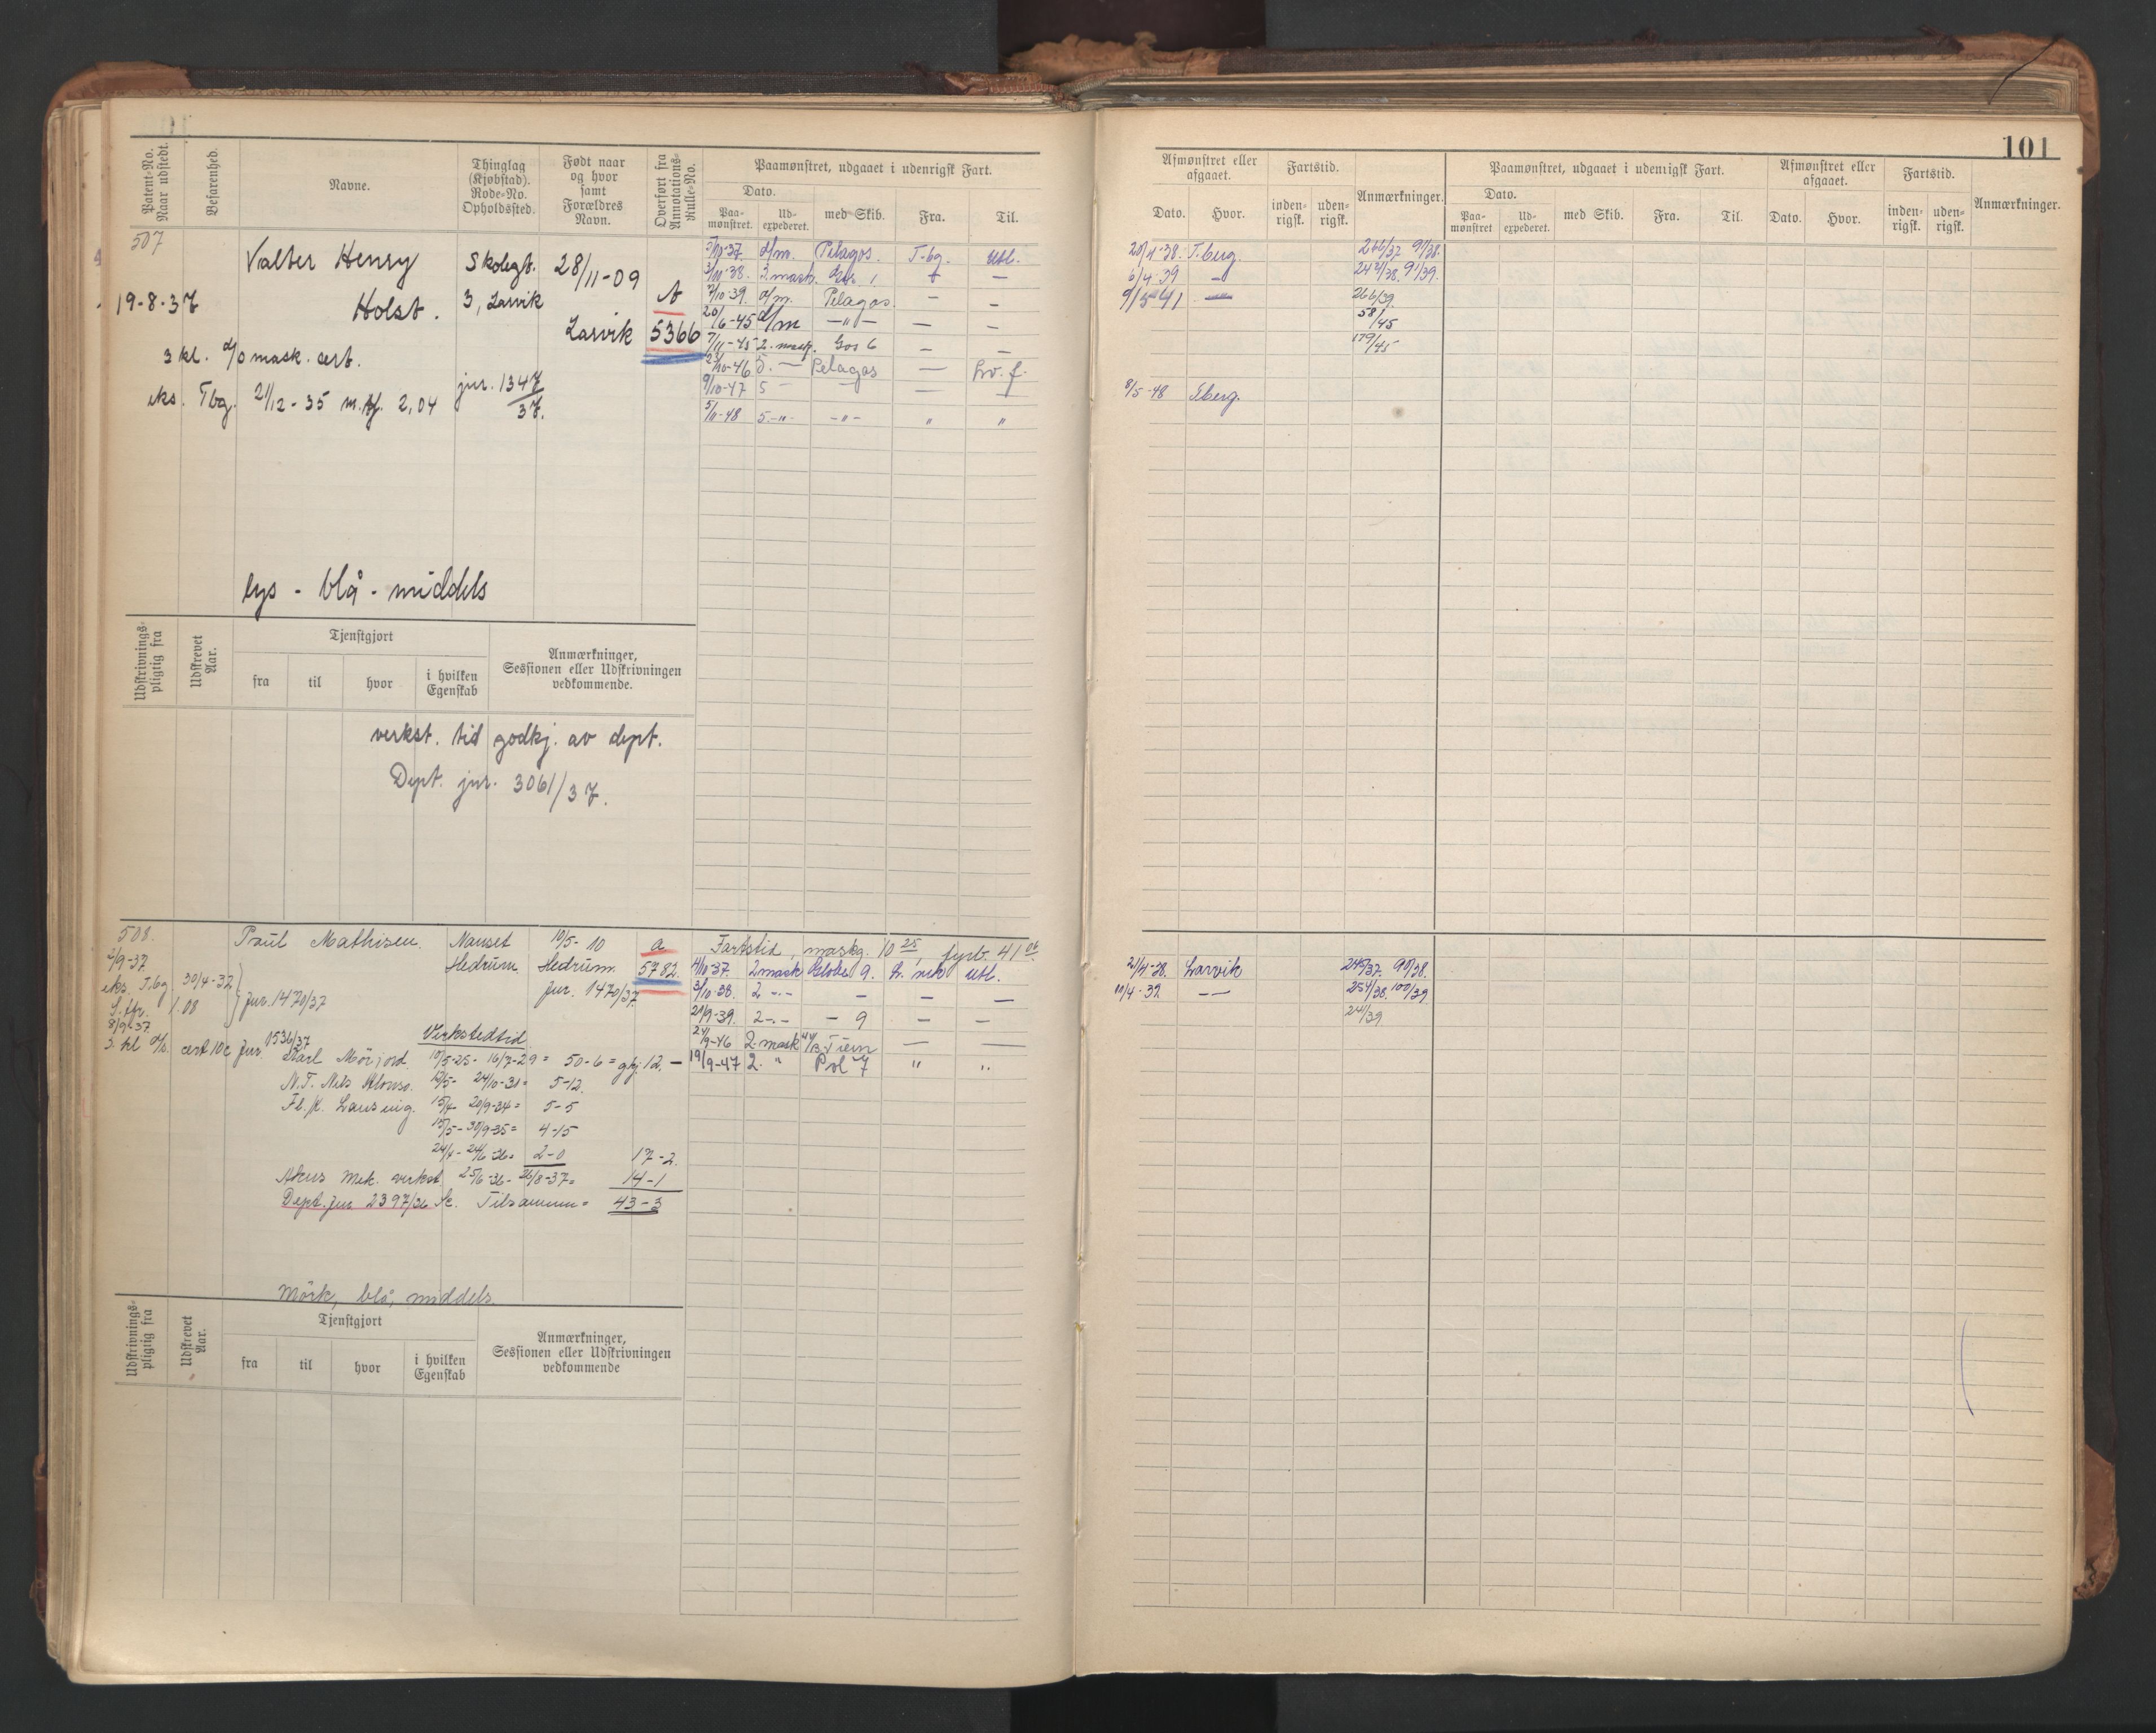 101
Patent-No. Naar udstedt.
Befarenhed.
Navne.
Thinglag (Kjøbstad). Rode-No. Opholdssted.
Født naar og hvor samt Forældres Navn.
Overført fra Annotations-Rulle-No.
Paamønstret, udgaaet i udenrigsk Fart.
Dato.
Paa-mønstret.
Ud-expederet.
med Skib.
Fra.
Til.
Afmønstret eller afgaaet.
Dato.
Hvor.
Fartstid.
inden-rigsk.
uden-rigsk.
Anmærkninger.
Paamønstret, udgaaet i udenrigsk Fart.
Dato.
Paa-mønstret
Ud-expederet.
med Skib.
Fra.
Til.
Afmønstret eller afgaaet.
Dato.
Hvor.
Fartstid.
inden-rigsk.
uden-rigsk.
Anmærkninger.
507
Valter Henry Skolegt. 28/11-09
19-8-37 Holst. 3, Larvik A
Larvik 5366
3 kl. d/o mask. cert.
eks. Tbg. 21/12-35 m. 2,04 jnr. 1347/37.
lys - blå - middels
d/m. Pelagos. T-bg. Utl. 266/37 91/38.
3/11-38. 2 mask. 1 6/4-39 — 91/39.
7/10-39. d/m. Pelagos. — — 266/39.
20/6-45 d/m —"— — — 58/45
7/11-45 2. mask. Gos 6 — — 179/45
23/10-46 5. — Pelagos — hv. f.
9/10-47 5 — — — — 8/5-48 Tberg.
5/11-48 5.-"- -"- " "
Udskrivnings-pligtig fra
Udskrevet Aar.
Tjenstgjort
fra
til
hvor
i hvilken Egenskab
Anmærkninger, Sessionen eller Udskrivningen vedkommende.
verkst. tid godkj. av dept.
Dept. jnr. 3061/37.
508. Paul Mathisen. Nanset 10/5-10 a
2/9-37 Hedrum Hedrum. 5782.
eks. Tbg. 30/4-32 jnr. 1470/37.
1.08 } jnr. 1470/37
8/9-37.
3. kl d/o. cert 10c jnr. 1536/37
Fartstid, maskg. 10 25, fyrb. 41 06.
4/10-37. 2 mask Globe 9. Utl. 21/4-38. Larvik 245/37. 90/38.
3/10-38. 2 -.- — — — 11/4-39. — 254/38. 100/39
29/9-39. 2 -.- — 9 — — 24/39
24/9-46 2 mask — —
19/9-47 2. " Pol 7 " "
Verkstedtid
16/7-29 = 50-6 = 12. —
24/10-31= 5-12.
20/9-34 = 5-5
15/5 - 30/9-35 = 4-15
24/4 - 24/6-36= 2-0 17-2.
Akers Mek. verkst. 25/6-36 - 26/8-37= 14-1
Dept. jnr 2397/36 Tilsammen = 43-3
Mörk, blå, middels.
Udskrivnings-pligtig fra
Udskrevet Aar.
Tjenstgjort
fra
til
hvor
i hvilken Egenskab
Anmærkninger, Sessionen eller Udskrivningen vedkommende